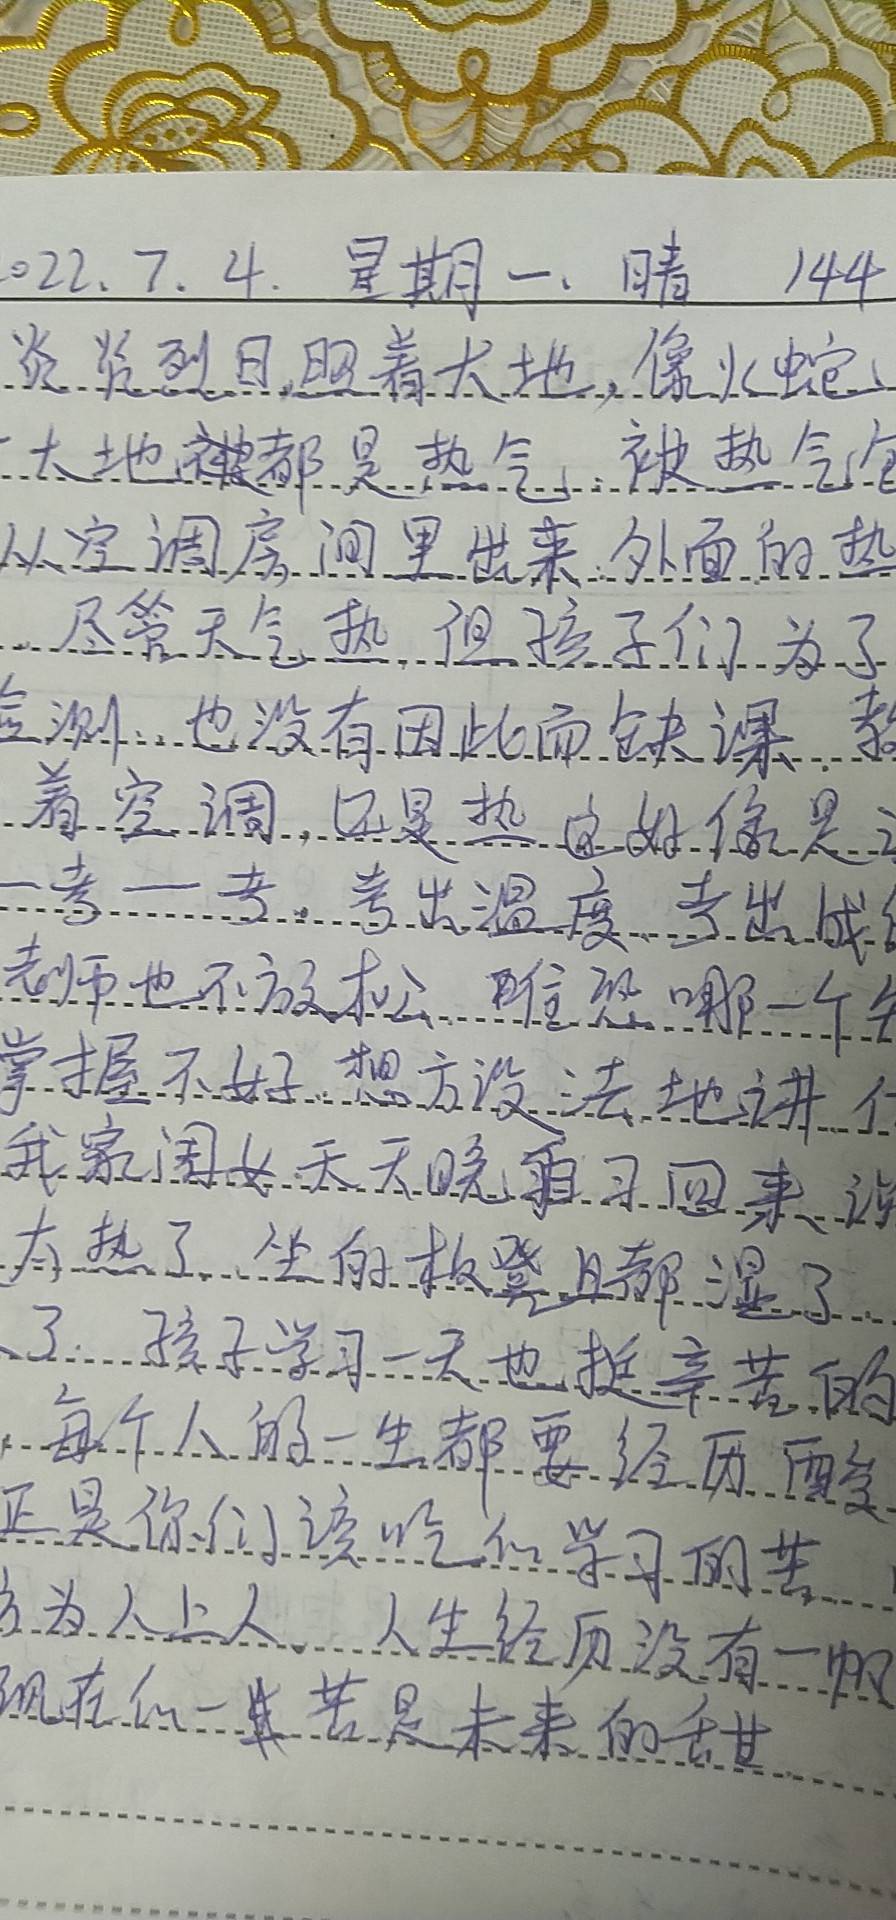 2022.7.4. 星期一. 晴 144
炎炎烈日,照着大地,像火蛇
大地被都是热气.被热气包
从空调房间里出来.外面的热
.尽管天气热.但孩子们为了
检测.也没有因此而缺课.教
着空调,还是热 这好像是
一考一考.考出温度.考出成绩
老师也不放松.唯恐哪一个
掌握不好.想方设法地讲.
我家闺女天天晚自习回来说
太热了.坐的板凳且都湿了.
了.孩子学习一天也挺辛苦的
.每个人的一生都要经历酸
正是你们该吃仏学习的苦.
方为人上人.人生经历没有一帆
现在仏一些苦是未来的甜.